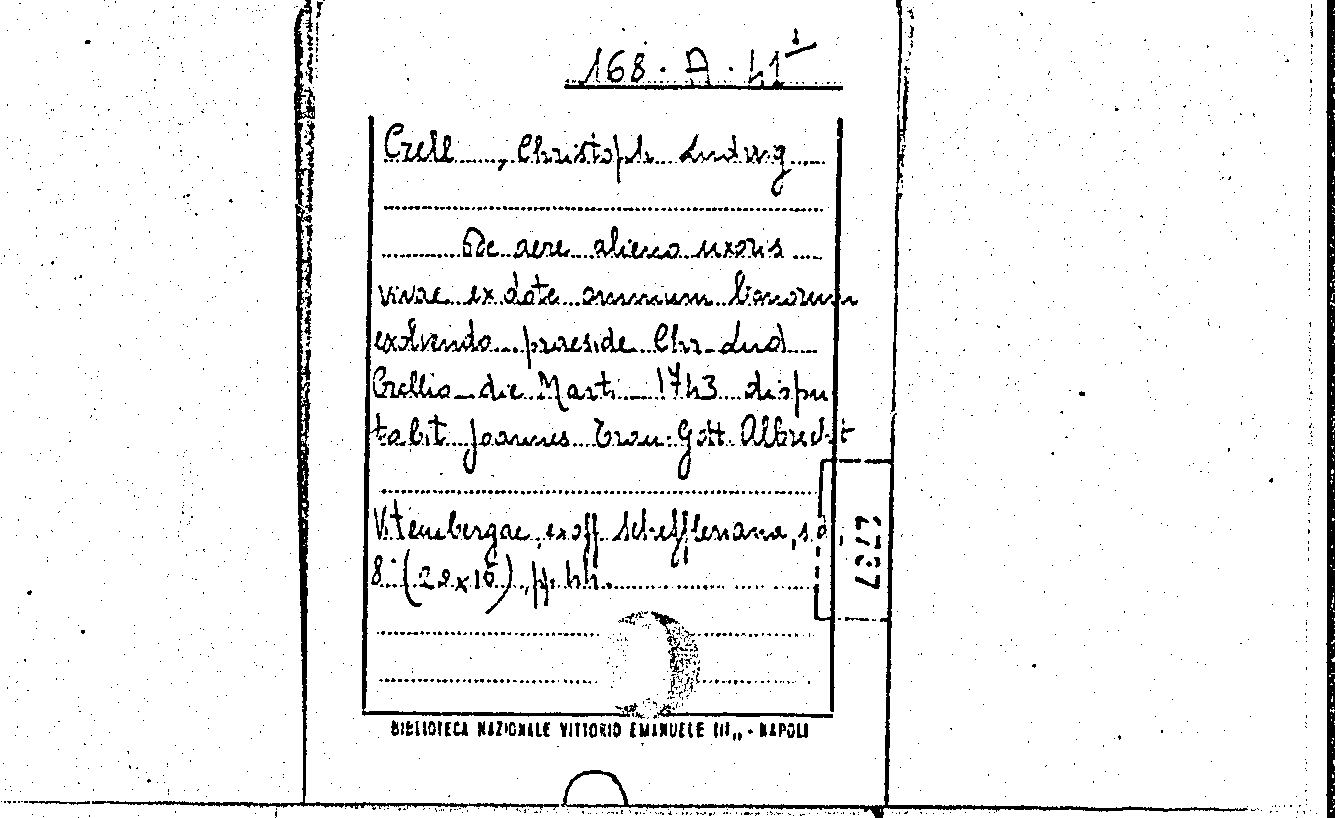 168 · A · 41¹
Crell , Christoph Ludwig
De aere alieno uxoris
vivae ex dote omnium bonorum
exolvendo praeside Chr. Lud
Crellio die Marti 1743 dispu
tabit Joannes Trau. Gott. Albrecht
Vitembergae, ex off Scheffleriana, s.d
8° (22x16), pp. 44.
BIBLIOTECA NAZIONALE VITTORIO EMANUELE III,, - NAPOLI